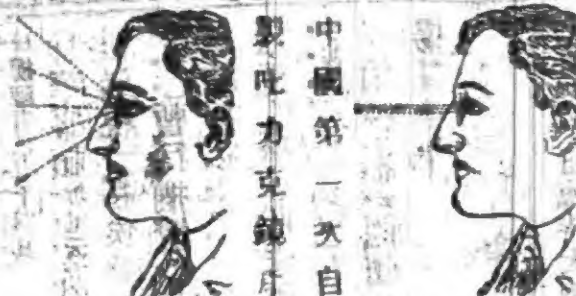 中國第一次自
製力克鏡片